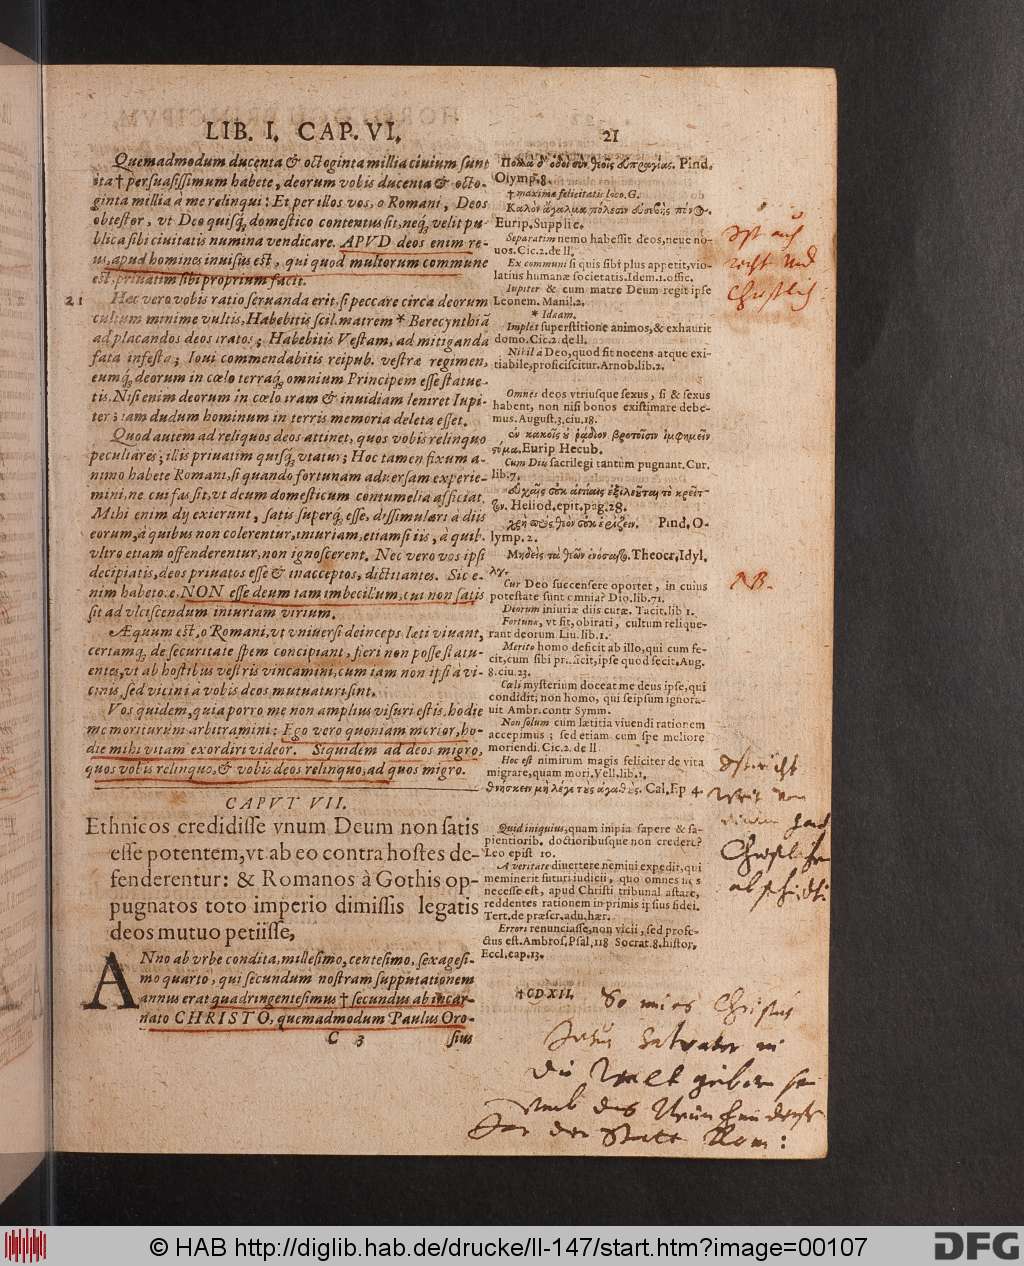 LIB. I. CAP. VI. 21
Quemadmodum ducenta & octoginta millia ciuium sunt
ita † persuasissimum habete, deorum vobis ducenta & octo-
ginta millia à me relinqui: Et per illos vos, o Romani, Deos
obtestor, vt Deo quisq́; domestico contentus sit, neq́; velit pu-
blica sibi ciuitatis numina vendicare. APVD deos enim re-
us, apud homines inuisus est, qui quod multorum commune
est, priuatim sibi proprium facit.
21 Hæc vero vobis ratio seruanda erit, si peccare circa deorum
cultum minime vultis, Habebitis scil. matrem * Berecynthiā
ad placandos deos iratos; Habebitis Vestam, ad mitiganda
fata infesta; Ioui commendabitis reipub. vestræ regimen,
eumq́; deorum in cœlo terraq́; omnium Principem esse statue-
tis. Nisi enim deorum in cœlo iram & inuidiam leniret Iupi-
ter; iam dudum hominum in terris memoria deleta esset.
Quod autem ad reliquos deos attinet, quos vobis relinquo
peculiares; illis priuatim quisq́; vtatur; Hoc tamen fixum a-
nimo habete Romani, si quando fortunam aduersam experie-
mini, ne cui fas sit, vt deum domesticum contumelia afficiat.
Mihi enim dij exierunt, satis superq́; esse, dissimulari à diis
eorum, à quibus non colerentur, iniuriam, etiamsi iis, à quib.
vltro etiam offenderentur, non ignoscerent. Nec vero vos ipsi
decipiatis, deos priuatos esse & inacceptos, dictitantes. Sic e-
nim habetote, NON esse deum tam imbecillum, cui non satis
sit ad vlciscendum iniuriam virium.
Æquum est, o Romani, vt vniuersi deinceps læti viuant,
certamq́; de securitate spem concipiant, fieri non posse si atu-
entes, vt ab hostibus vestris vincamini, cum iam non ipsi à vi-
cinis, sed vicini à vobis deos mutuaturi sint.
Vos quidem, quia porro me non amplius visuri estis, hodie
me moriturum arbitramini: Ego vero quoniam morior, ho-
die mihi vitam exordiri videor. Siquidem ad deos migro,
quos vobis relinquo, & vobis deos relinquo, ad quos migro.
CAPVT VII.
Ethnicos credidisse vnum Deum non satis
esse potentem, vt ab eo contra hostes de-
fenderentur: & Romanos à Gothis op-
pugnatos toto imperio dimissis legatis
deos mutuo petiisse,
ANno ab vrbe condita, millesimo, centesimo, sexagesi-
mo quarto, qui secundum nostram supputationem
annus erat quadringentesimus † secundus ab incar-
nato CHRISTO, quemadmodum Paulus Oro-
C 3 sius
Pind.
Olymp. 8.
† maximæ felicitatis loco. G.
Eurip. Supplic.
Separatim nemo habessit deos, neue no-
uos. Cic. 2. de ll.
Ex communi si quis sibi plus appetit, vio-
latius humanæ societatis. Idem. 1. offic.
Iupiter & cum matre Deum regit ipse
Leonem. Manil. 2.
* Idæam.
Implet superstitione animos, & exhaurit
domo. Cic. 2. de ll.
Nihil à Deo, quod sit nocens atque exi-
tiabile, proficiscitur. Arnob. lib. 2.
Omnes deos vtriusque sexus, si & sexus
habent, non nisi bonos existimare debe-
mus. August. 3. ciu. 18.
Eurip Hecub.
Cum Diis sacrilegi tantum pugnant. Cur.
lib. 7.
Heliod. epit. pag. 28.
Pind. O-
lymp. 2.
Theocr. Idyl.
Cur Deo succensere oportet, in cuius
potestate sunt omnia? Dio. lib. 71.
Deorum iniuriæ diis curæ. Tacit. lib 1.
Fortuna, vt sit, obirati, cultum relique-
rant deorum Liu. lib. 1.
Merito homo deficit ab illo, qui cum fe-
cit, cum sibi præficit, ipse quod fecit. Aug.
8. ciu. 23.
Cœli mysterium doceat me deus ipse, qui
condidit; non homo, qui seipsum ignora-
uit Ambr. contr Symm.
Non solum cum lætitia viuendi rationem
accepimus; sed etiam cum spe meliore
moriendi. Cic. 2. de ll
Hoc est nimirum magis feliciter de vita
migrare, quam mori. Vell. lib. 1.
θνήσκειν μὴ λέγε τοὺς ἀγαθούς. Cal. Ep 4.
Quid iniquius, quam inipia sapere & sa-
pientiorib. doctioribusque non credere?
Leo epist 10.
A veritate diuertere nemini expedit, qui
meminerit futuri iudicii, quo omnes nos
necesse est, apud Christi tribunal astare,
reddentes rationem in primis ipsius fidei.
Tert. de præscr. adu. hær.
Errori renunciasse, non vicii, sed profe-
ctus est. Ambros. Psal. 118 Socrat. 8. histor.
Eccl. cap. 13.
† CDXII.
Ist auch
recht und
Christlich
NB.
Christliche
So Christus
Jesus Salvator in
die Welt geboren
der Statt Rom:
© HAB http://diglib.hab.de/drucke/ll-147/start.htm?image=00107
DFG